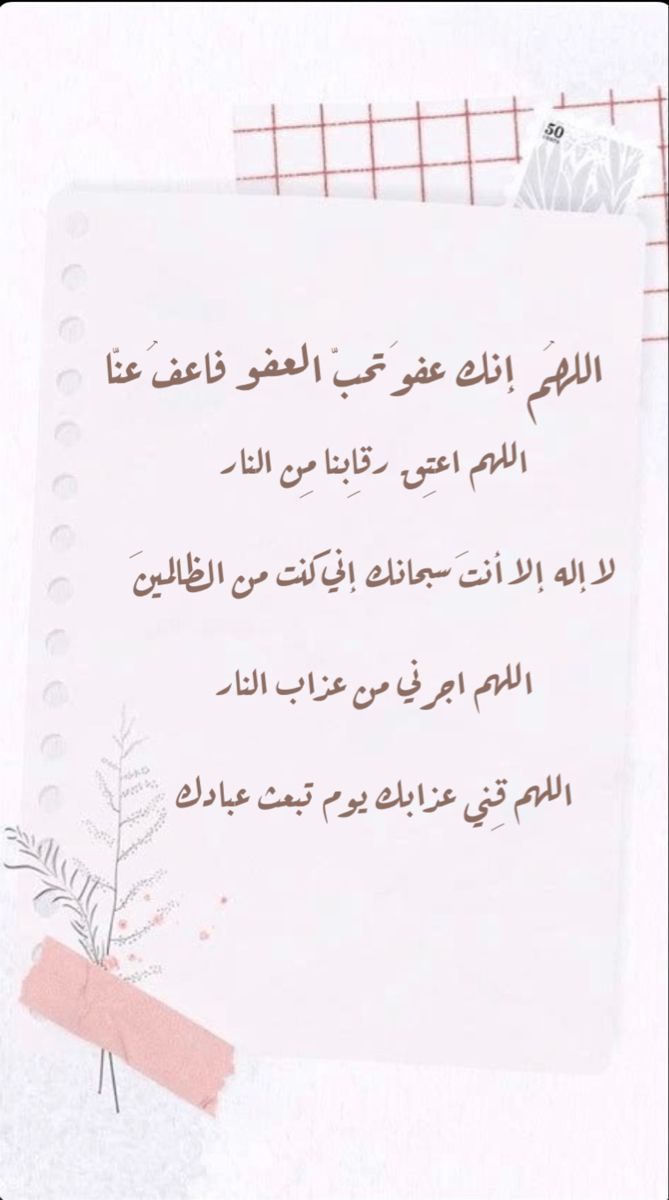 50
اللهمُ إنك عفوَ تحبّ العفو فاعفُ عنّا
اللهم اعتِق رقابِنا مِن النار
لا إله إلا أنتَ سبحانك إني كنت من الظالمينَ
اللهم اجرني من عزاب النار
اللهم قِني عزابك يوم تبعث عبادك